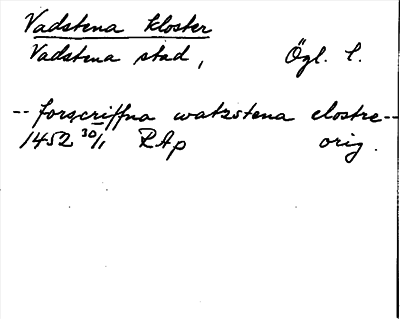 Vadstena kloster
Vadstena stad, Ögl. l.
-- forscriffna watzstena clostre --
1452 30/1 RAp orig.